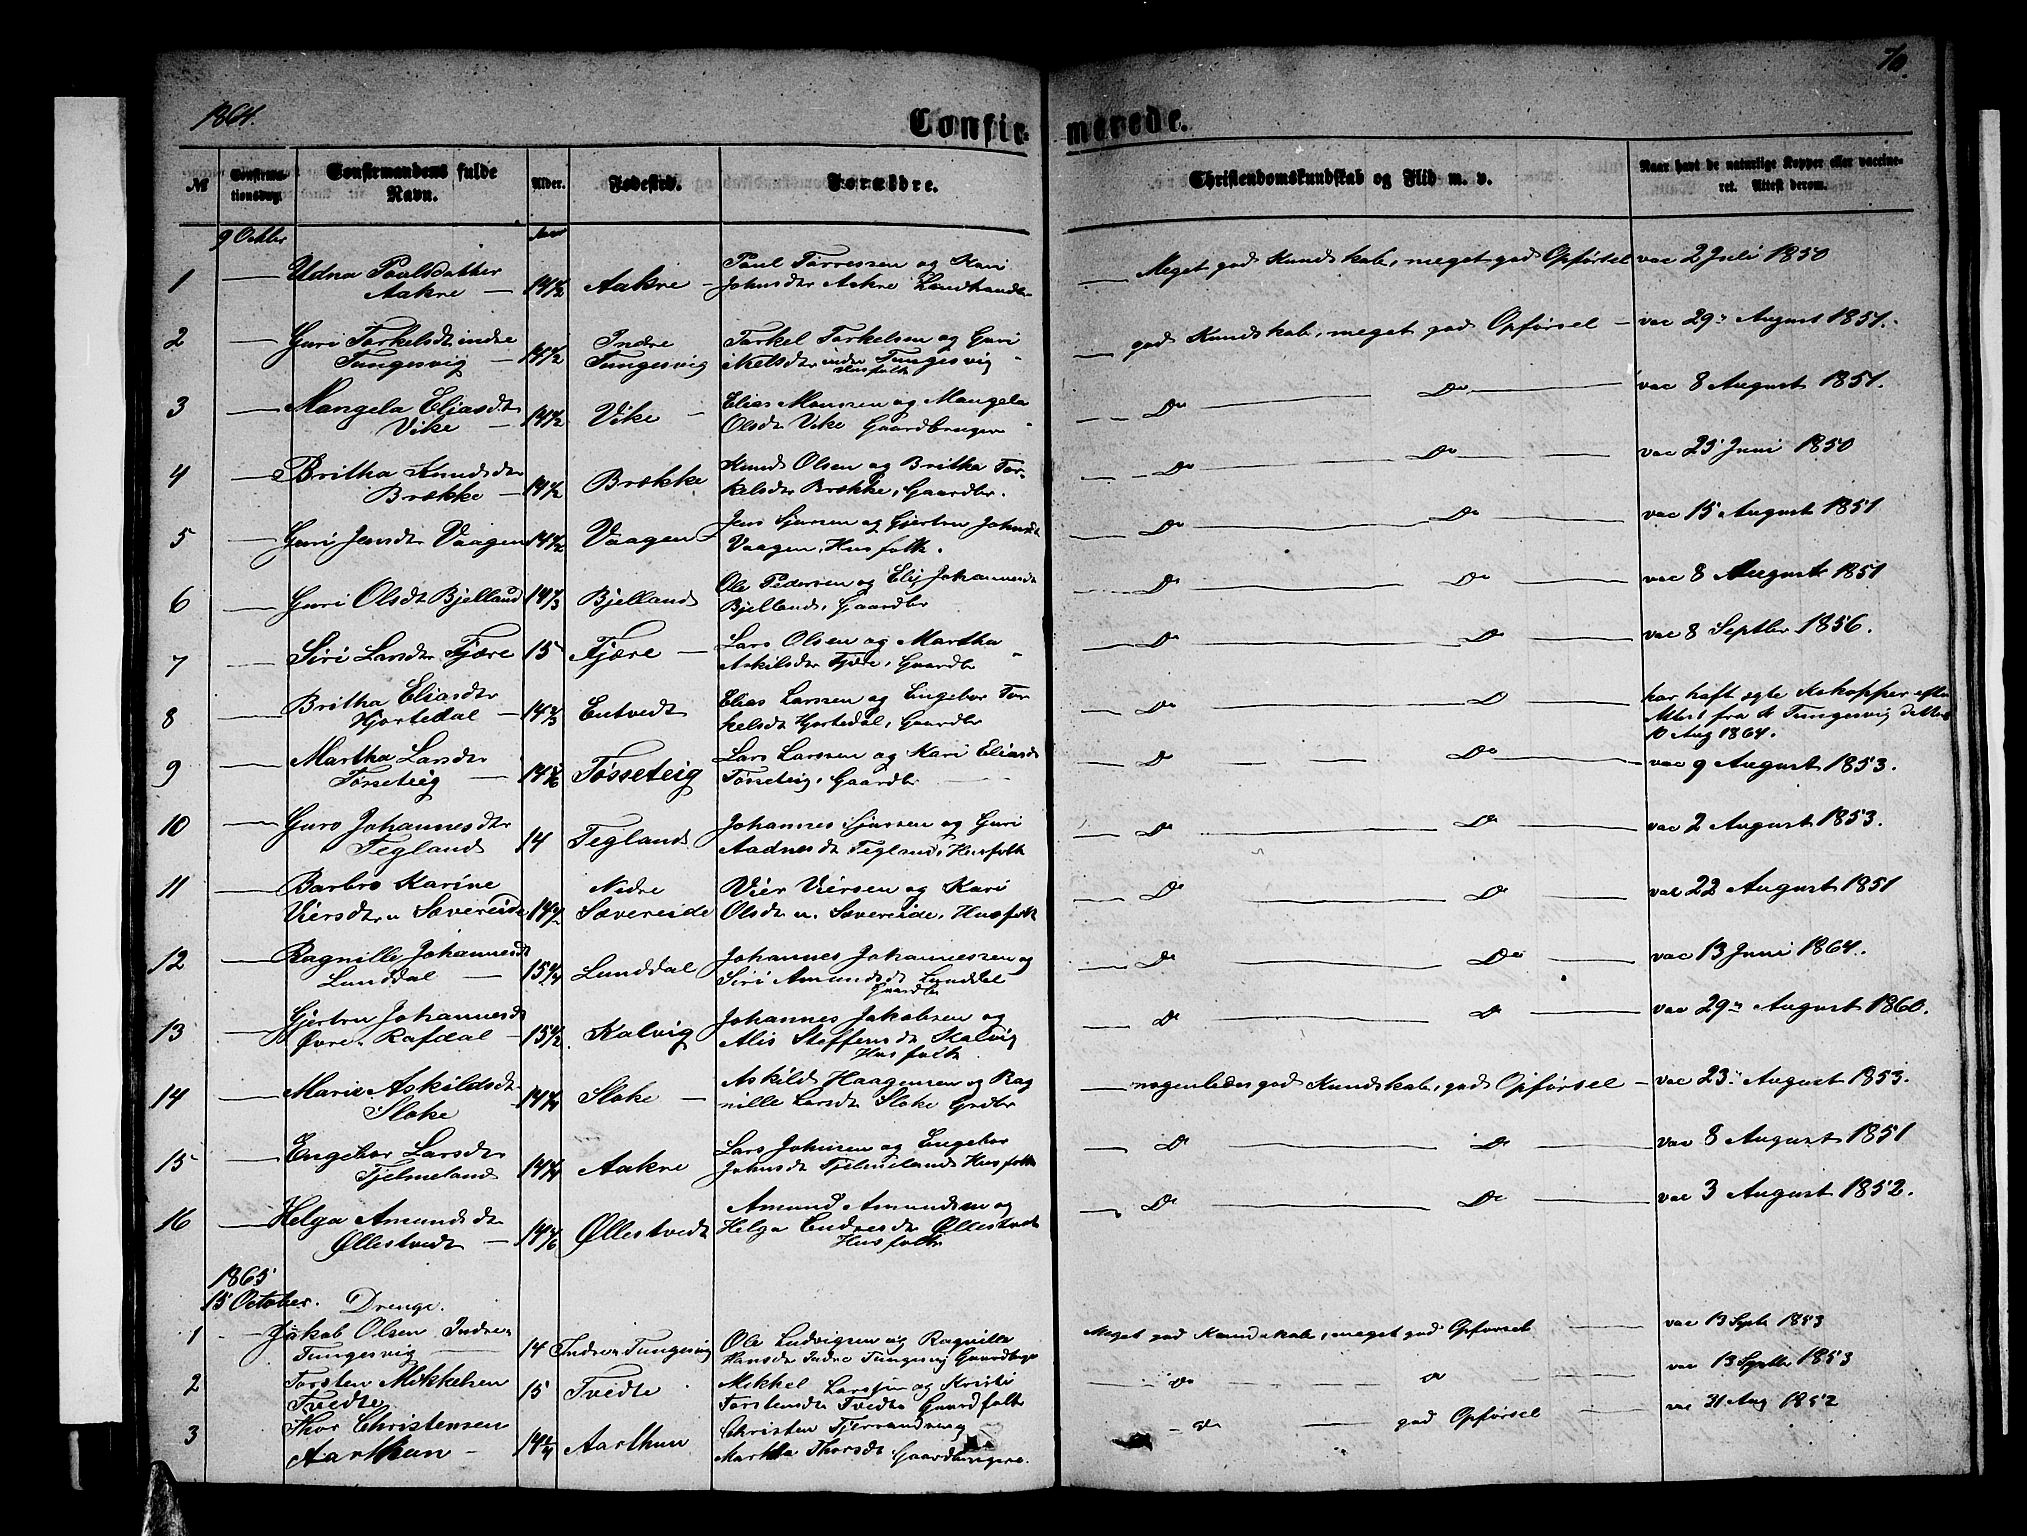 1864.
70.
Confirmerede.
№ | Confirmationsdag. | Confirmandens fulde Navn. | Alder. | Fødested. | Forældre. | Christendomskundskab og Flid m. v. | Naar havt de naturlige Kopper eller vaccineret. Attest derom.
9 Octbr | Aar
1 — Udna Poulsdatter Aakre — 14 1/2 Aakre — Poul Tørressen og Kari Johnsdtr Aakre Landhandler — Meget god Kundskab, meget god Opførsel vac 2 Juli 1850
2 — Guri Torkelsdtr indre Tungesvig — 14 1/2 Indre Tungesvig Torkel Torkelsen og Guri Nielsdtr indre Tungesvig Husfolk — god Kundskab, meget god Opførsel — vac 29 August 1851.
3 — Mangela Eliasdtr Vike — 14 1/2 Vike — Elias Monssen og Mangela Olsdtr Vike Gaardbruger — Do — Do — vac 8 August 1851.
4 — Britha Knudsdtr Brekke — 14 1/2 Brekke Knud Olsen og Britha Torkelsdtr Brekke, Gaardbr. — Do — Do vac 25 Juni 1850
5 — Guri Jensdtr Vaagen 14 1/2 Vaagen Jens Sjursen og Gjertru Johnsdtr Vaagen, Husfolk. — Do — Do — vac 15 August 1851
6 — Guri Olsdtr Bjelland 14 1/3 Bjelland Ole Pedersen og Eli Johannesdtr Bjelland, Gaardbr — Do — Do — vac 8 August 1851
7 — Siri Larsdtr Fjære 15 Fjære — Lars Olsen og Martha Askilsdtr Fjære, Gaardbr — Do — Do — vac 8 Septbr 1856.
8 — Britha Eliasdtr Hjortedal — 14 2/3 Entvedt Elias Larssen og Engebor Torkelsdt Hjortedal, Gaardbr — Do — D — har haft egte Kokopper efter Attest fra Tungesvig 10 Aug 1864.
9 — Martha Larsdtr Tøsseteig — 14 Tøsseteig Lars Larssen og Kari Eliasdt Tøsseteig, Gaardbr — Do — Do — vac 9 August 1853.
10 — Guro Johannesdtr Tegland 14 Tegland Johannes Sjursen og Guri Aadnesdt Tegland, Husfolk — Do — Do — vac 2 August 1853.
11 — Barbro Karine Viersdtr n Sævereide 14 1/2 Nedre Sævereide Vier Viersen og Kari Olsdt n. Sævereide, Husfolk — Do — Do — vac 22 August 1851
12 — Ragnille Johannesdt Lunddal — 15 1/4 Lunddal Johannes Johannessen og Siri Amundsdt Lunddal Gaardbr — Do — Do — vac 13 Juni 1864.
13 — Gjertru Johannesdt Øvre Rafdal — 15 1/2 Kalvig Johannes Jakobsen og Alis Steffensdt Kalvig Husfolk — Do — Do — vac 29 August 1860.
14 — Marie Askildsdtr Sloke 14 1/4 Sloke — Askild Haagensen og Ragnille Larsdt Sloke Grdbr — nogenledes god Kundskab, god Opførsel — vac 23 August 1853.
15 — Engebor Larsdtr Tjelmeland 14 1/4 Aakre Lars Johnsen og Engebor Johnsdt Tjelmeland Husfolk — Do — Do — vac 8 August 1851
16 — Helga Amundsdtr Øllestvedt — 14 1/6 Øllestvedt Amund Amundsen og Helga Endresdtr Øllestvedt Husfolk — Do — Do — vac 3 August 1852.
1865
15 October. Drenge.
1 — Jakob Olsen Indre Tungesvig — 14 Indre Tungesvig Ole Ludvigsen og Ragnille Hansdtr Indre Tungesvig Gaardbrgr Meget god Kundskab, meget god Opførsel — vac 13 Sept 1853
2 Torsten Mikkelsen Tvedte 15 Tvedte Mikkel Larssen og Kristi Torstensdtr Tvedte Gaardfolk — do — do vac 13 Septbr 1853
3 Thor Christensen Aarthun — 14 1/4 Aarthun Christen Tjerrandsen og Martha Thorsdt Gaardbrugere. — do — god Opførsel — vac 21 Aug 1852